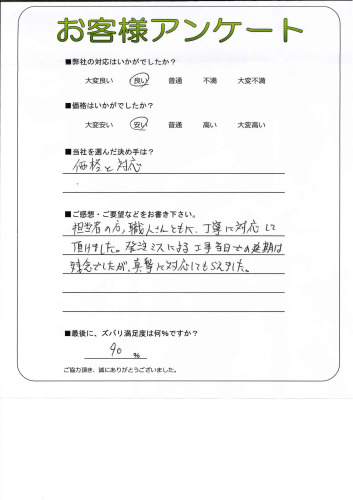 お客様アンケート
■弊社の対応はいかがでしたか?
大変良い 良い 普通 不満 大変不満
■価格はいかがでしたか?
大変安い 安い 普通 高い 大変高い
■当社を選んだ決め手は?
価格と対応
■ご感想・ご要望などをお書き下さい。
担当者の方、職人さんともに、丁寧に対応して
頂けました。発注ミスによる工事当日での延期は
残念でしたが、真摯に対応してもらえました。
■最後に、ズバリ満足度は何%ですか?
90 %
ご協力頂き、誠にありがとうございました。